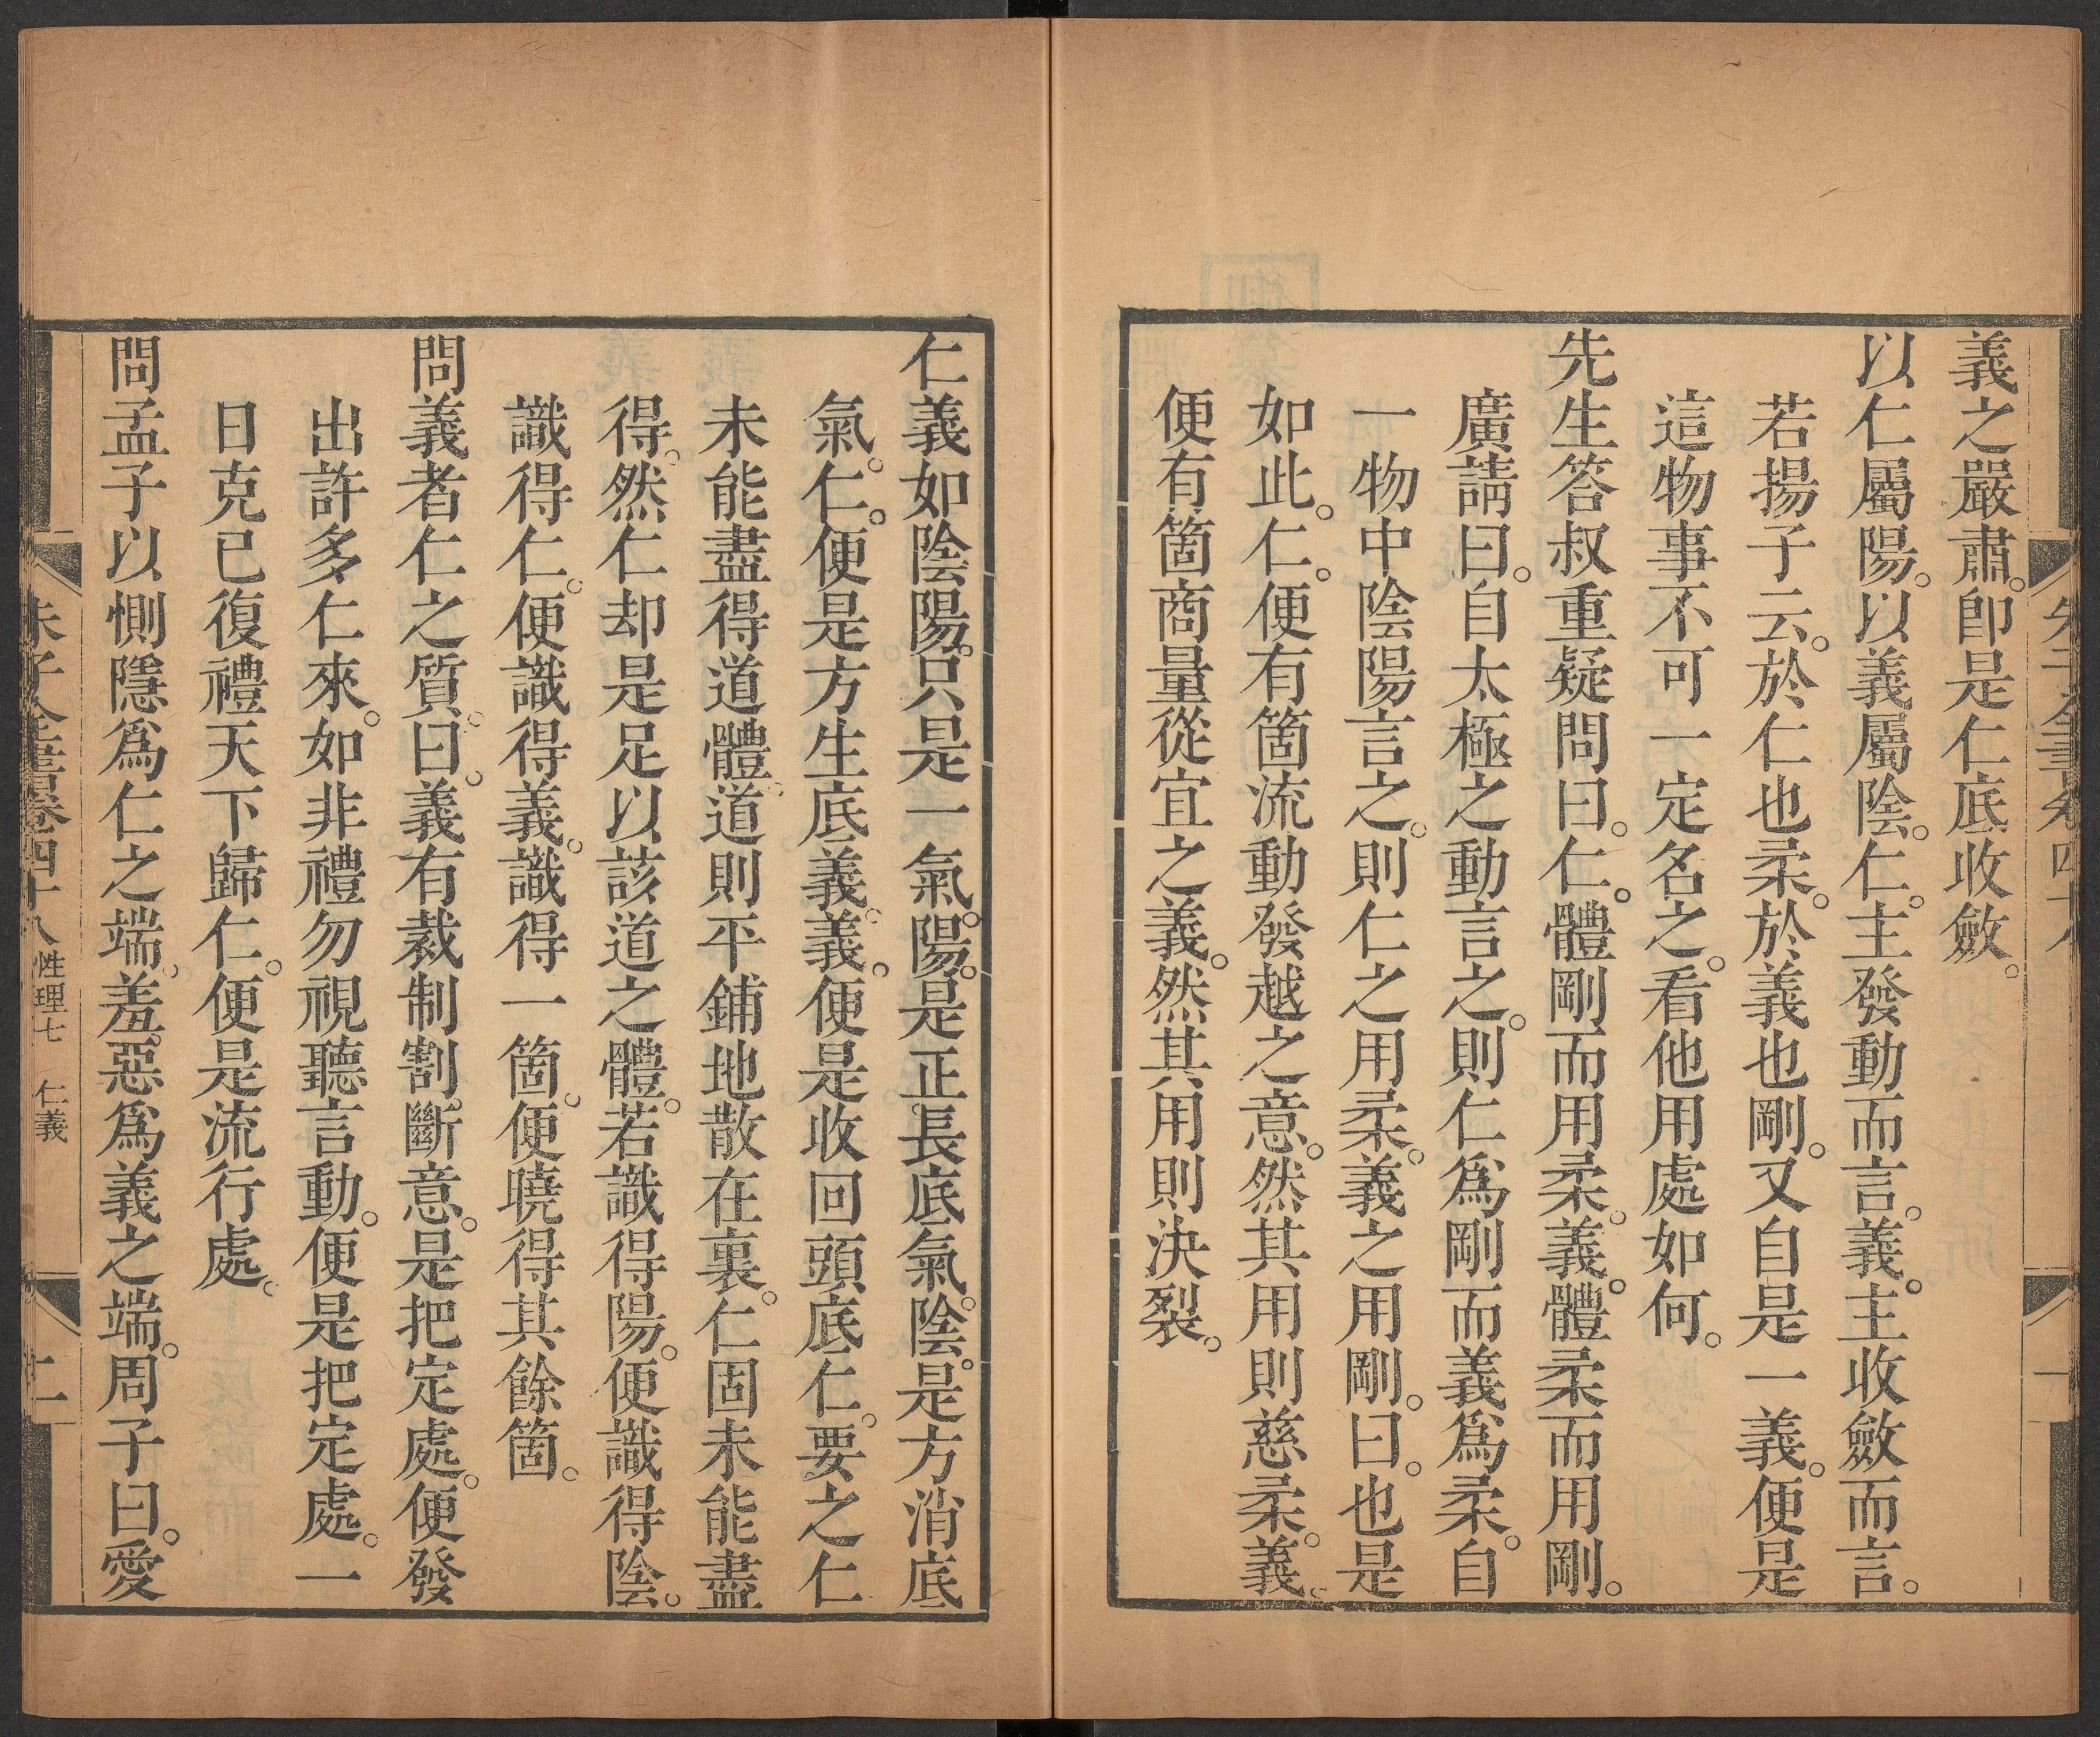 朱子全書卷四十八
一
義之嚴肅。卽是仁底收斂。
以仁屬陽。以義屬陰。仁。主發動而言。義。主收斂而言。
若揚子云。於仁也柔。於義也剛。又自是一義。便是
這物事不可一定名之。看他用處如何。
先生答叔重疑問曰。仁。體剛而用柔。義。體柔而用剛。
廣請曰。自太極之動言之。則仁爲剛而義爲柔。自
一物中陰陽言之。則仁之用柔。義之用剛。曰。也是
如此。仁。便有箇流動發越之意。然其用則慈柔。義。
便有箇商量從宜之義。然其用則決裂。
仁義如陰陽。只是一氣。陽。是正長底氣。陰。是方消底
氣。仁。便是方生底義。義。便是收回頭底仁。要之仁
未能盡得道體。道則平鋪地散在裏。仁固未能盡
得。然仁却是足以該道之體。若識得陽。便識得陰。
識得仁。便識得義。識得一箇。便曉得其餘箇。
問義者仁之質。曰。義有裁制割斷意。是把定處。便發
出許多仁來。如非禮勿視聽言動。便是把定處。一
日克已復禮天下歸仁。便是流行處。
問孟子以惻隱爲仁之端。羞惡爲義之端。周子曰。愛
朱子全書卷四十八 性理七 仁義
二